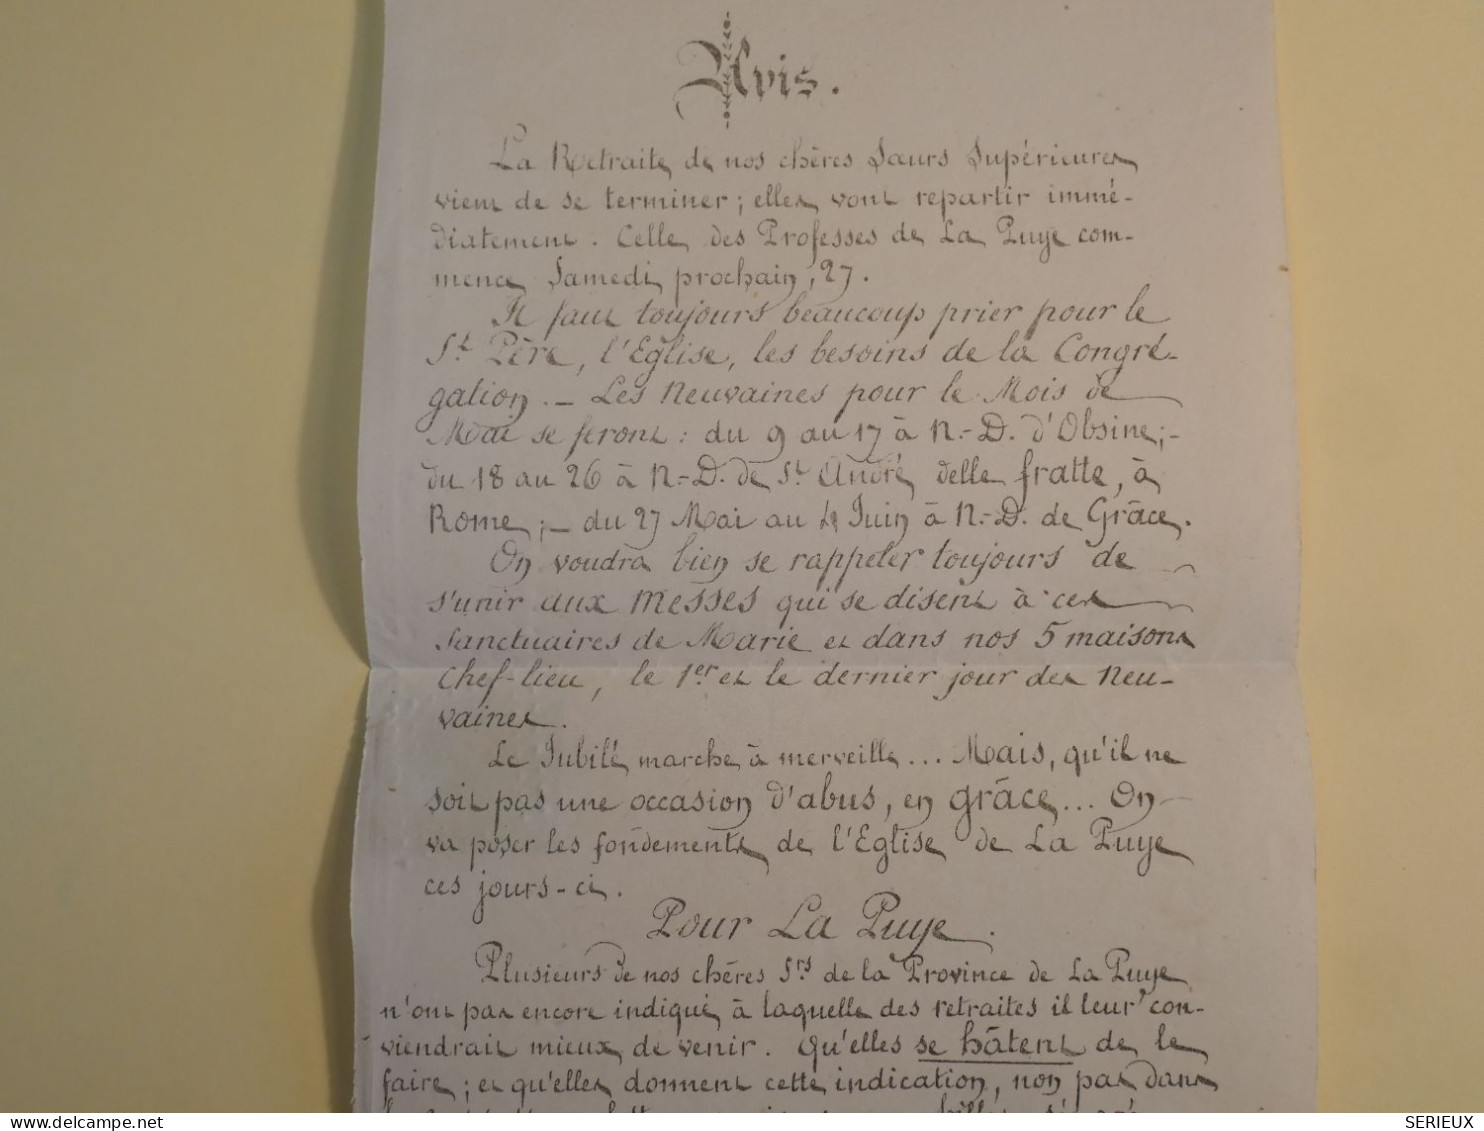 Avis.
La Retraite de nos chères Sœurs Supérieures
vient de se terminer ; elles vont repartir immé-
diatement. Celle des Professes de La Puye com-
mence Samedi prochain, 27.
Il faut toujours beaucoup prier pour le
St. Père, l'Eglise, les besoins de la Congré-
gation. — Les Neuvaines pour le Mois de
Mai se feront : du 9 au 17 à N.-D. d'Obsine ;-
du 18 au 26 à N.-D. de St. André delle fratte, à
Rome ; — du 27 Mai au 4 Juin à N.-D. de Grâce.
On voudra bien se rappeler toujours de
s'unir aux Messes qui se disent à ces
Sanctuaires de Marie et dans nos 5 maisons
Chef-lieu, le 1er. et le dernier jour des Neu-
vaines.
Le Jubilé marche à merveille... Mais, qu'il ne
soit pas une occasion d'abus, en grâce... On
va poser les fondements de l'Eglise de La Puye
ces jours-ci.
Pour La Puye.
Plusieurs de nos chères Srs de la Province de La Puye
n'ont pas encore indiqué à laquelle des retraites il leur con-
viendrait mieux de venir. Qu'elles se hâtent de le
faire ; et qu'elles donnent cette indication, non pas dans
delcampe.net
SERIEUX